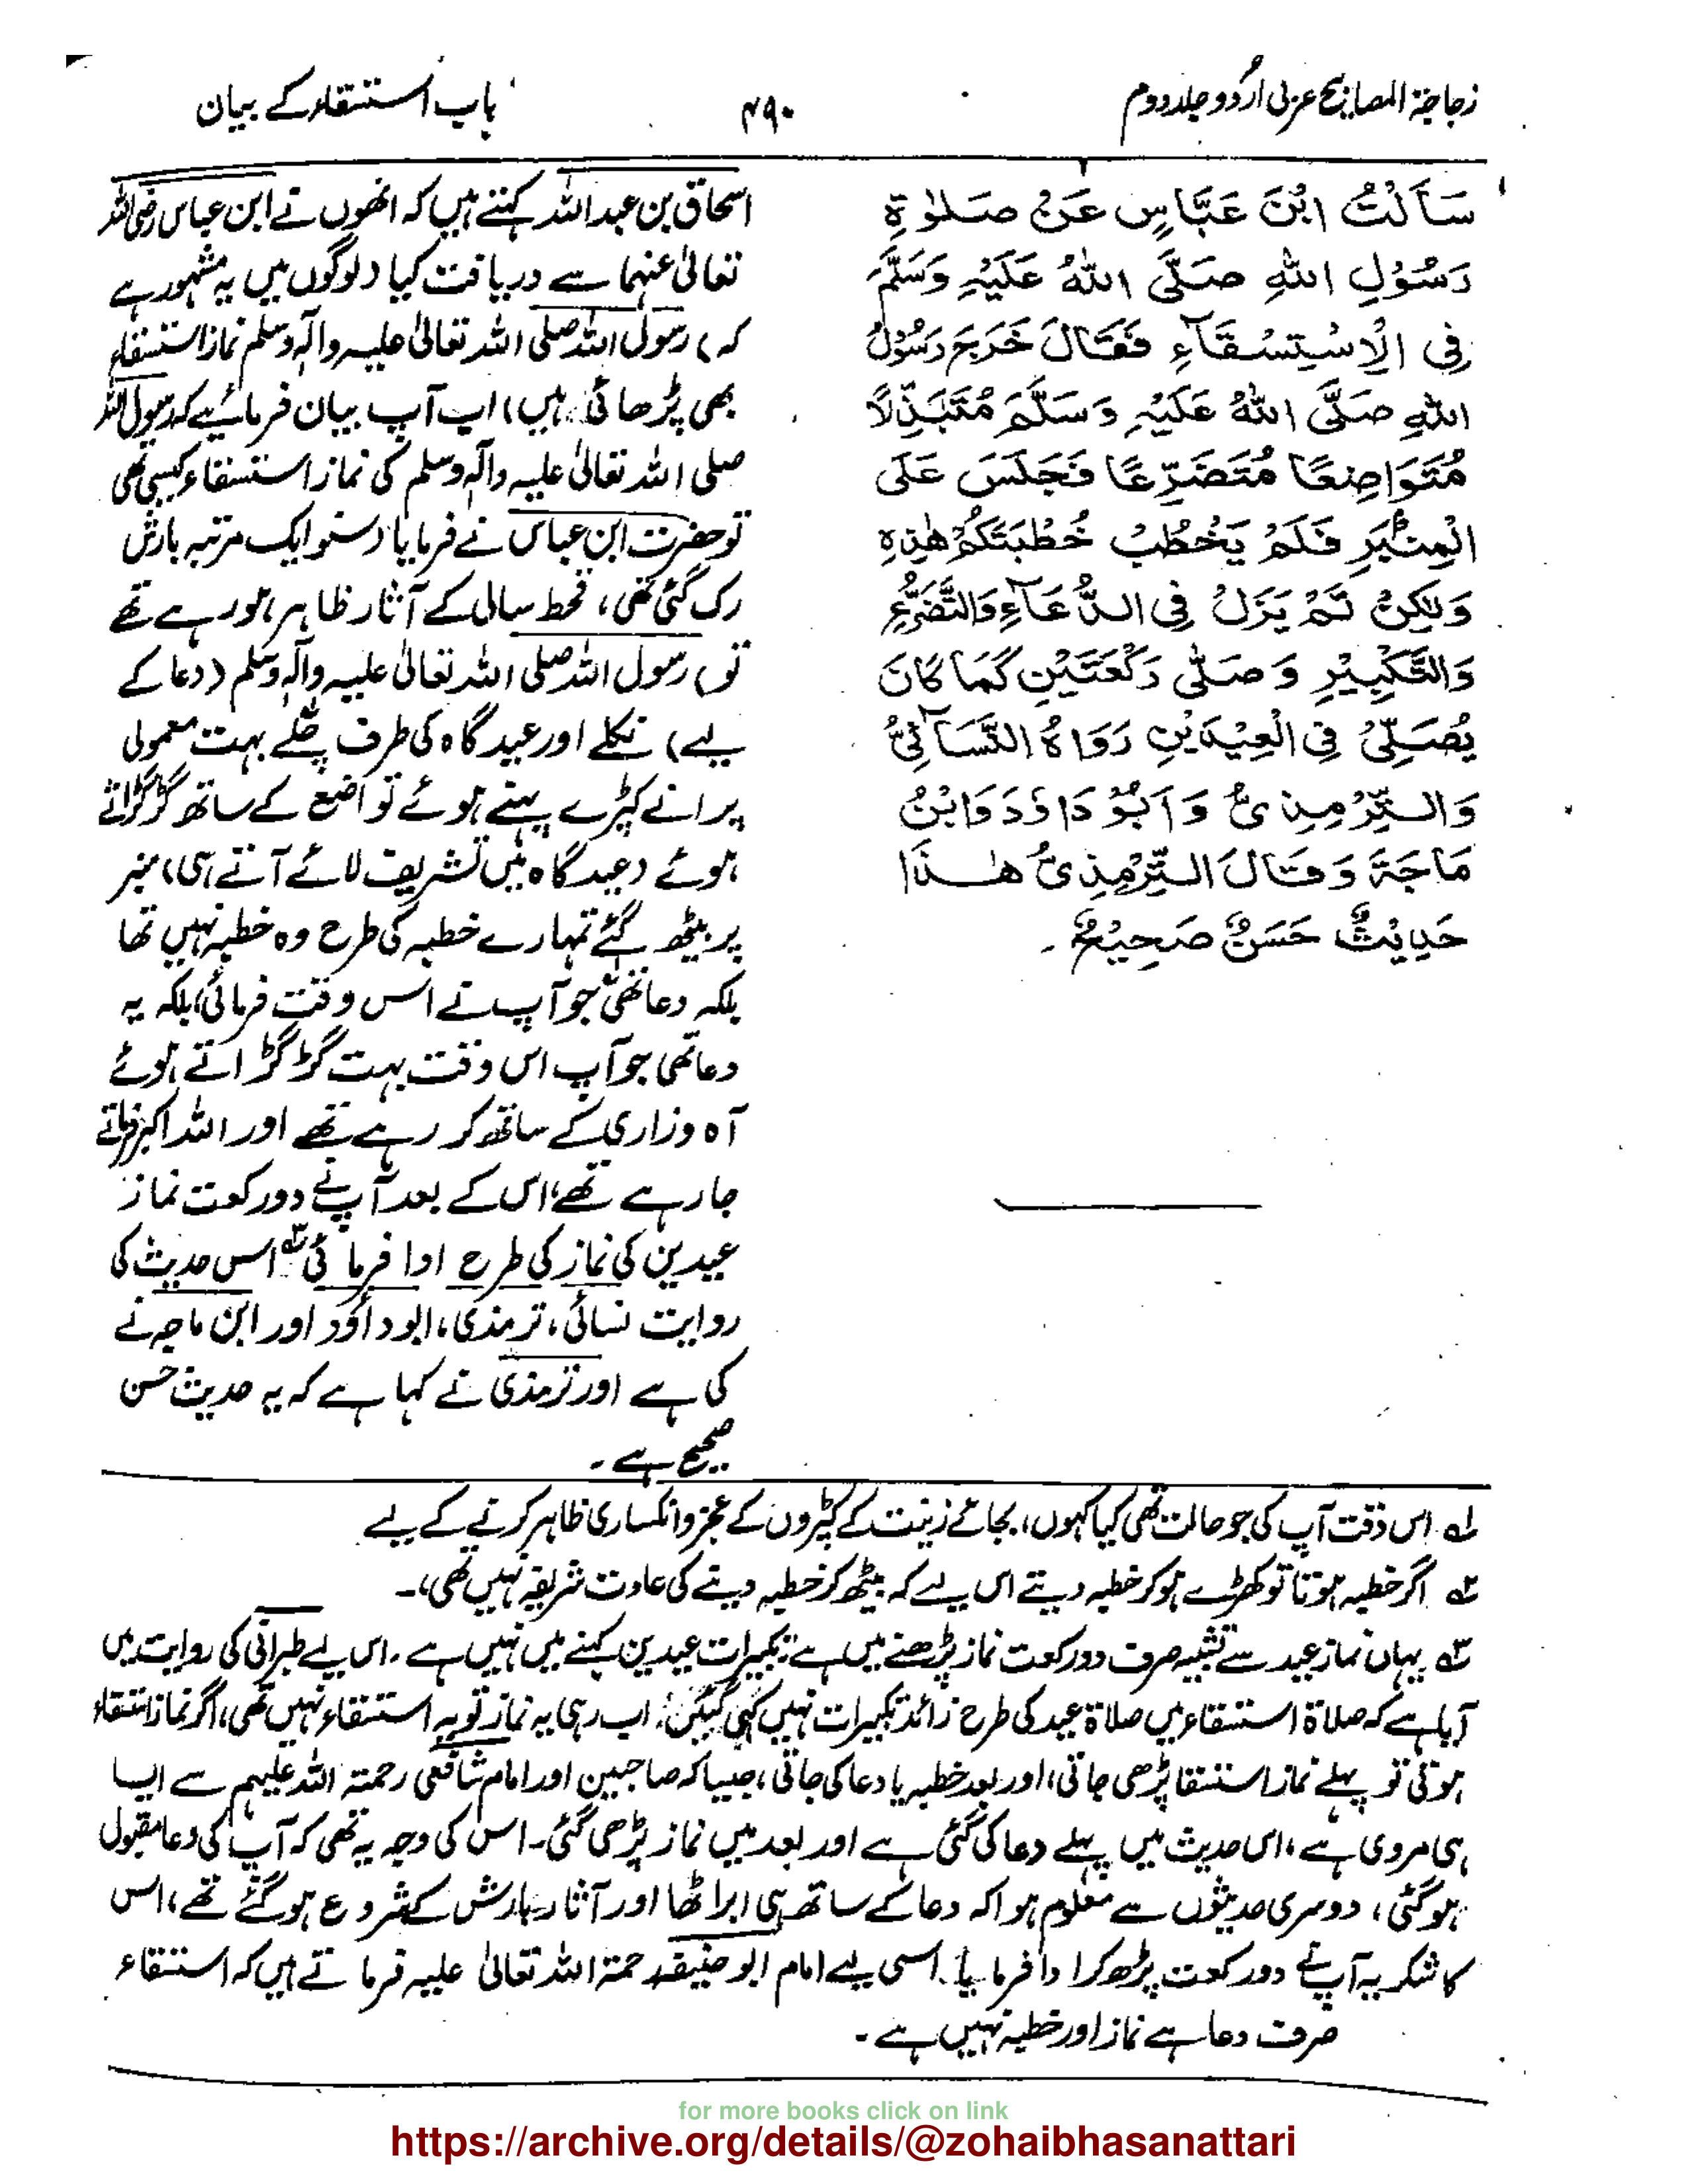 زجاجۃ المصابیح عربی اُردو جلد دوم
۴۹۰
باب استسقاء کے بیان
سَأَلْتُ ابْنَ عَبَّاسٍ عَنْ صَلٰوةِ
رَسُوْلِ اللهِ صَلَّى اللهُ عَلَيْهِ وَسَلَّمَ
فِي الْاِسْتِسْقَآءِ فَقَالَ خَرَجَ رَسُوْلُ
اللهِ صَلَّى اللهُ عَلَيْهِ وَسَلَّمَ مُتَبَذِّلًا
مُتَوَاضِعًا مُتَضَرِّعًا فَجَلَسَ عَلَى
الْمِنْبَرِ فَلَمْ يَخْطُبْ خُطْبَتَكُمْ هٰذِهٖ
وَلٰكِنْ لَمْ يَزَلْ فِي الدُّعَآءِ وَالتَّضَرُّعِ
وَالتَّكْبِيْرِ وَصَلّٰى رَكْعَتَيْنِ كَمَا كَانَ
يُصَلِّيْ فِي الْعِيْدَيْنِ رَوَاهُ النَّسَآئِيُّ
وَالتِّرْمِذِيُّ وَاَبُوْ دَاوٗدَ وَابْنُ
مَاجَةَ وَقَالَ التِّرْمِذِيُّ هٰذَا
حَدِيْثٌ حَسَنٌ صَحِيْحٌ ۔
اسحاق بن عبداللہ کہتے ہیں کہ انھوں نے ابن عباس رضی اللہ
تعالیٰ عنہما سے دریافت کیا (لوگوں میں یہ مشہور ہے
کہ) رسول اللہ صلی اللہ تعالیٰ علیہ وآلہٖ وسلم نماز استسقاء
بھی پڑھائی ہیں) اب آپ بیان فرمائیے کہ رسول اللہ
صلی اللہ تعالیٰ علیہ وآلہٖ وسلم کی نماز استسقاء کیسی تھی
تو حضرت ابن عباس نے فرمایا (سنو ایک مرتبہ بارش
رک گئی تھی، قحط سالی کے آثار ظاہر ہو رہے تھے
تو) رسول اللہ صلی اللہ تعالیٰ علیہ وآلہٖ وسلم (دعا کے
لیے) نکلے اور عید گاہ کی طرف چلے بہت معمولی
پرانے کپڑے پہنے ہوئے تواضع کے ساتھ گڑگڑاتے
ہوئے (عید گاہ میں تشریف لائے آتے ہی) منبر
پر بیٹھ گئے تمہارے خطبہ کی طرح وہ خطبہ نہیں تھا
بلکہ دعا تھی جو آپ نے اس وقت فرمائی، بلکہ یہ
دعا تھی جو آپ اس وقت بہت گڑ گڑاتے ہوئے
آہ وزاری کے ساتھ کر رہے تھے اور اللہ اکبر فرماتے
جا رہے تھے، اس کے بعد آپ نے دو رکعت نماز
عیدین کی نماز کی طرح ادا فرمائی ۳ اس حدیث کی
روایت نسائی، ترمذی، ابوداؤد اور ابن ماجہ نے
کی ہے اور ترمذی نے کہا ہے کہ یہ حدیث حسن
صحیح ہے ۔
۱ اس وقت آپ کی جو حالت تھی کیا کہوں، بجائے زینت کے کپڑوں کے عجز و انکساری ظاہر کرنے کے لیے
۲ اگر خطبہ ہوتا تو کھڑے ہو کر خطبہ دیتے اس لیے کہ بیٹھ کر خطبہ دینے کی عادت شریفہ نہیں تھی، ۔
۳ یہاں نماز عید سے تشبیہ صرف دو رکعت نماز پڑھنے میں ہے تکبیرات عیدین کہنے میں نہیں ہے ۔ اس لیے طبرانی کی روایت میں
آیا ہے کہ صلاۃ استسقاء میں صلاۃ عید کی طرح زائد تکبیرات نہیں کہی گئیں، اب رہی یہ نماز تو یہ استسقاء نہیں تھی، اگر نماز استسقاء
ہوتی تو پہلے نماز استسقا پڑھی جاتی، اور بعد خطبہ یا دعا کی جاتی، جیسا کہ صاحبین اور امام شافعی رحمتہ اللہ علیہم سے ایسا
ہی مروی ہے، اس حدیث میں پہلے دعا کی گئی ہے اور بعد میں نماز پڑھی گئی۔ اس کی وجہ یہ تھی کہ آپ کی دعا مقبول
ہو گئی، دوسری حدیثوں سے معلوم ہوا کہ دعا کے ساتھ ہی ابر اٹھا اور آثار بارش کے شروع ہو گئے تھے، اس
کا شکریہ آپ نے دو رکعت پڑھ کر ادا فرمایا ۔ اسی لیے امام ابو حنیفہ رحمۃ اللہ تعالیٰ علیہ فرماتے ہیں کہ استسقاء
صرف دعا ہے نماز اور خطبہ نہیں ہے ۔
for more books click on link
https://archive.org/details/@zohaibhasanattari